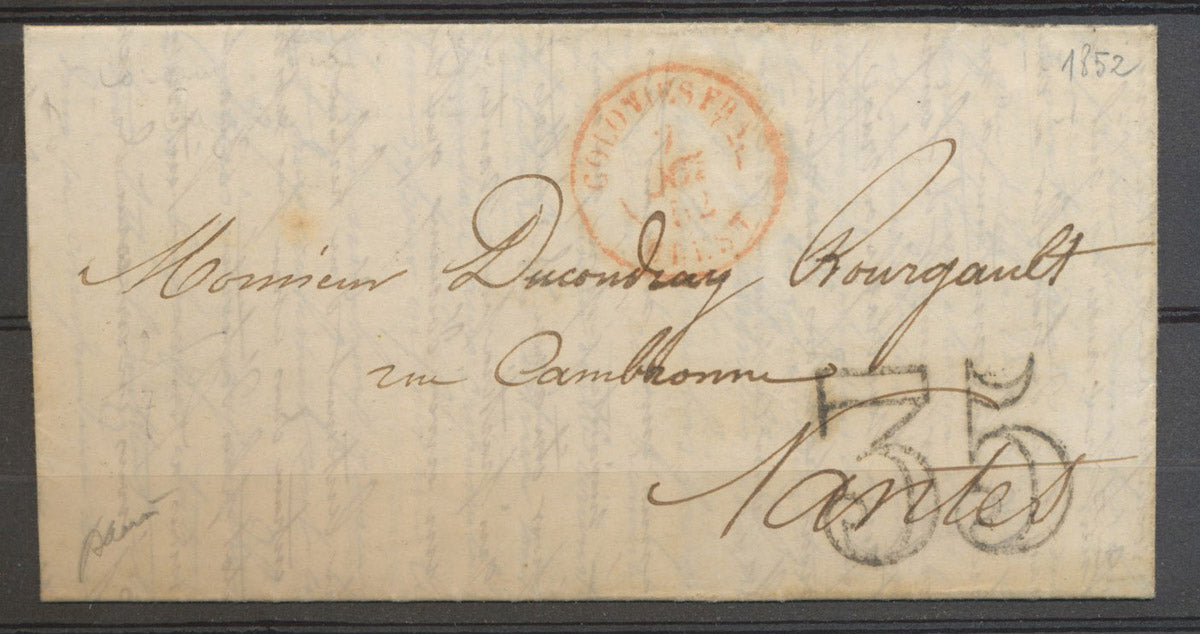 1852
COLONIES FRA
52
BREST
Monsieur Ducoudray Bourgault
rue Cambronne
Nantes
35